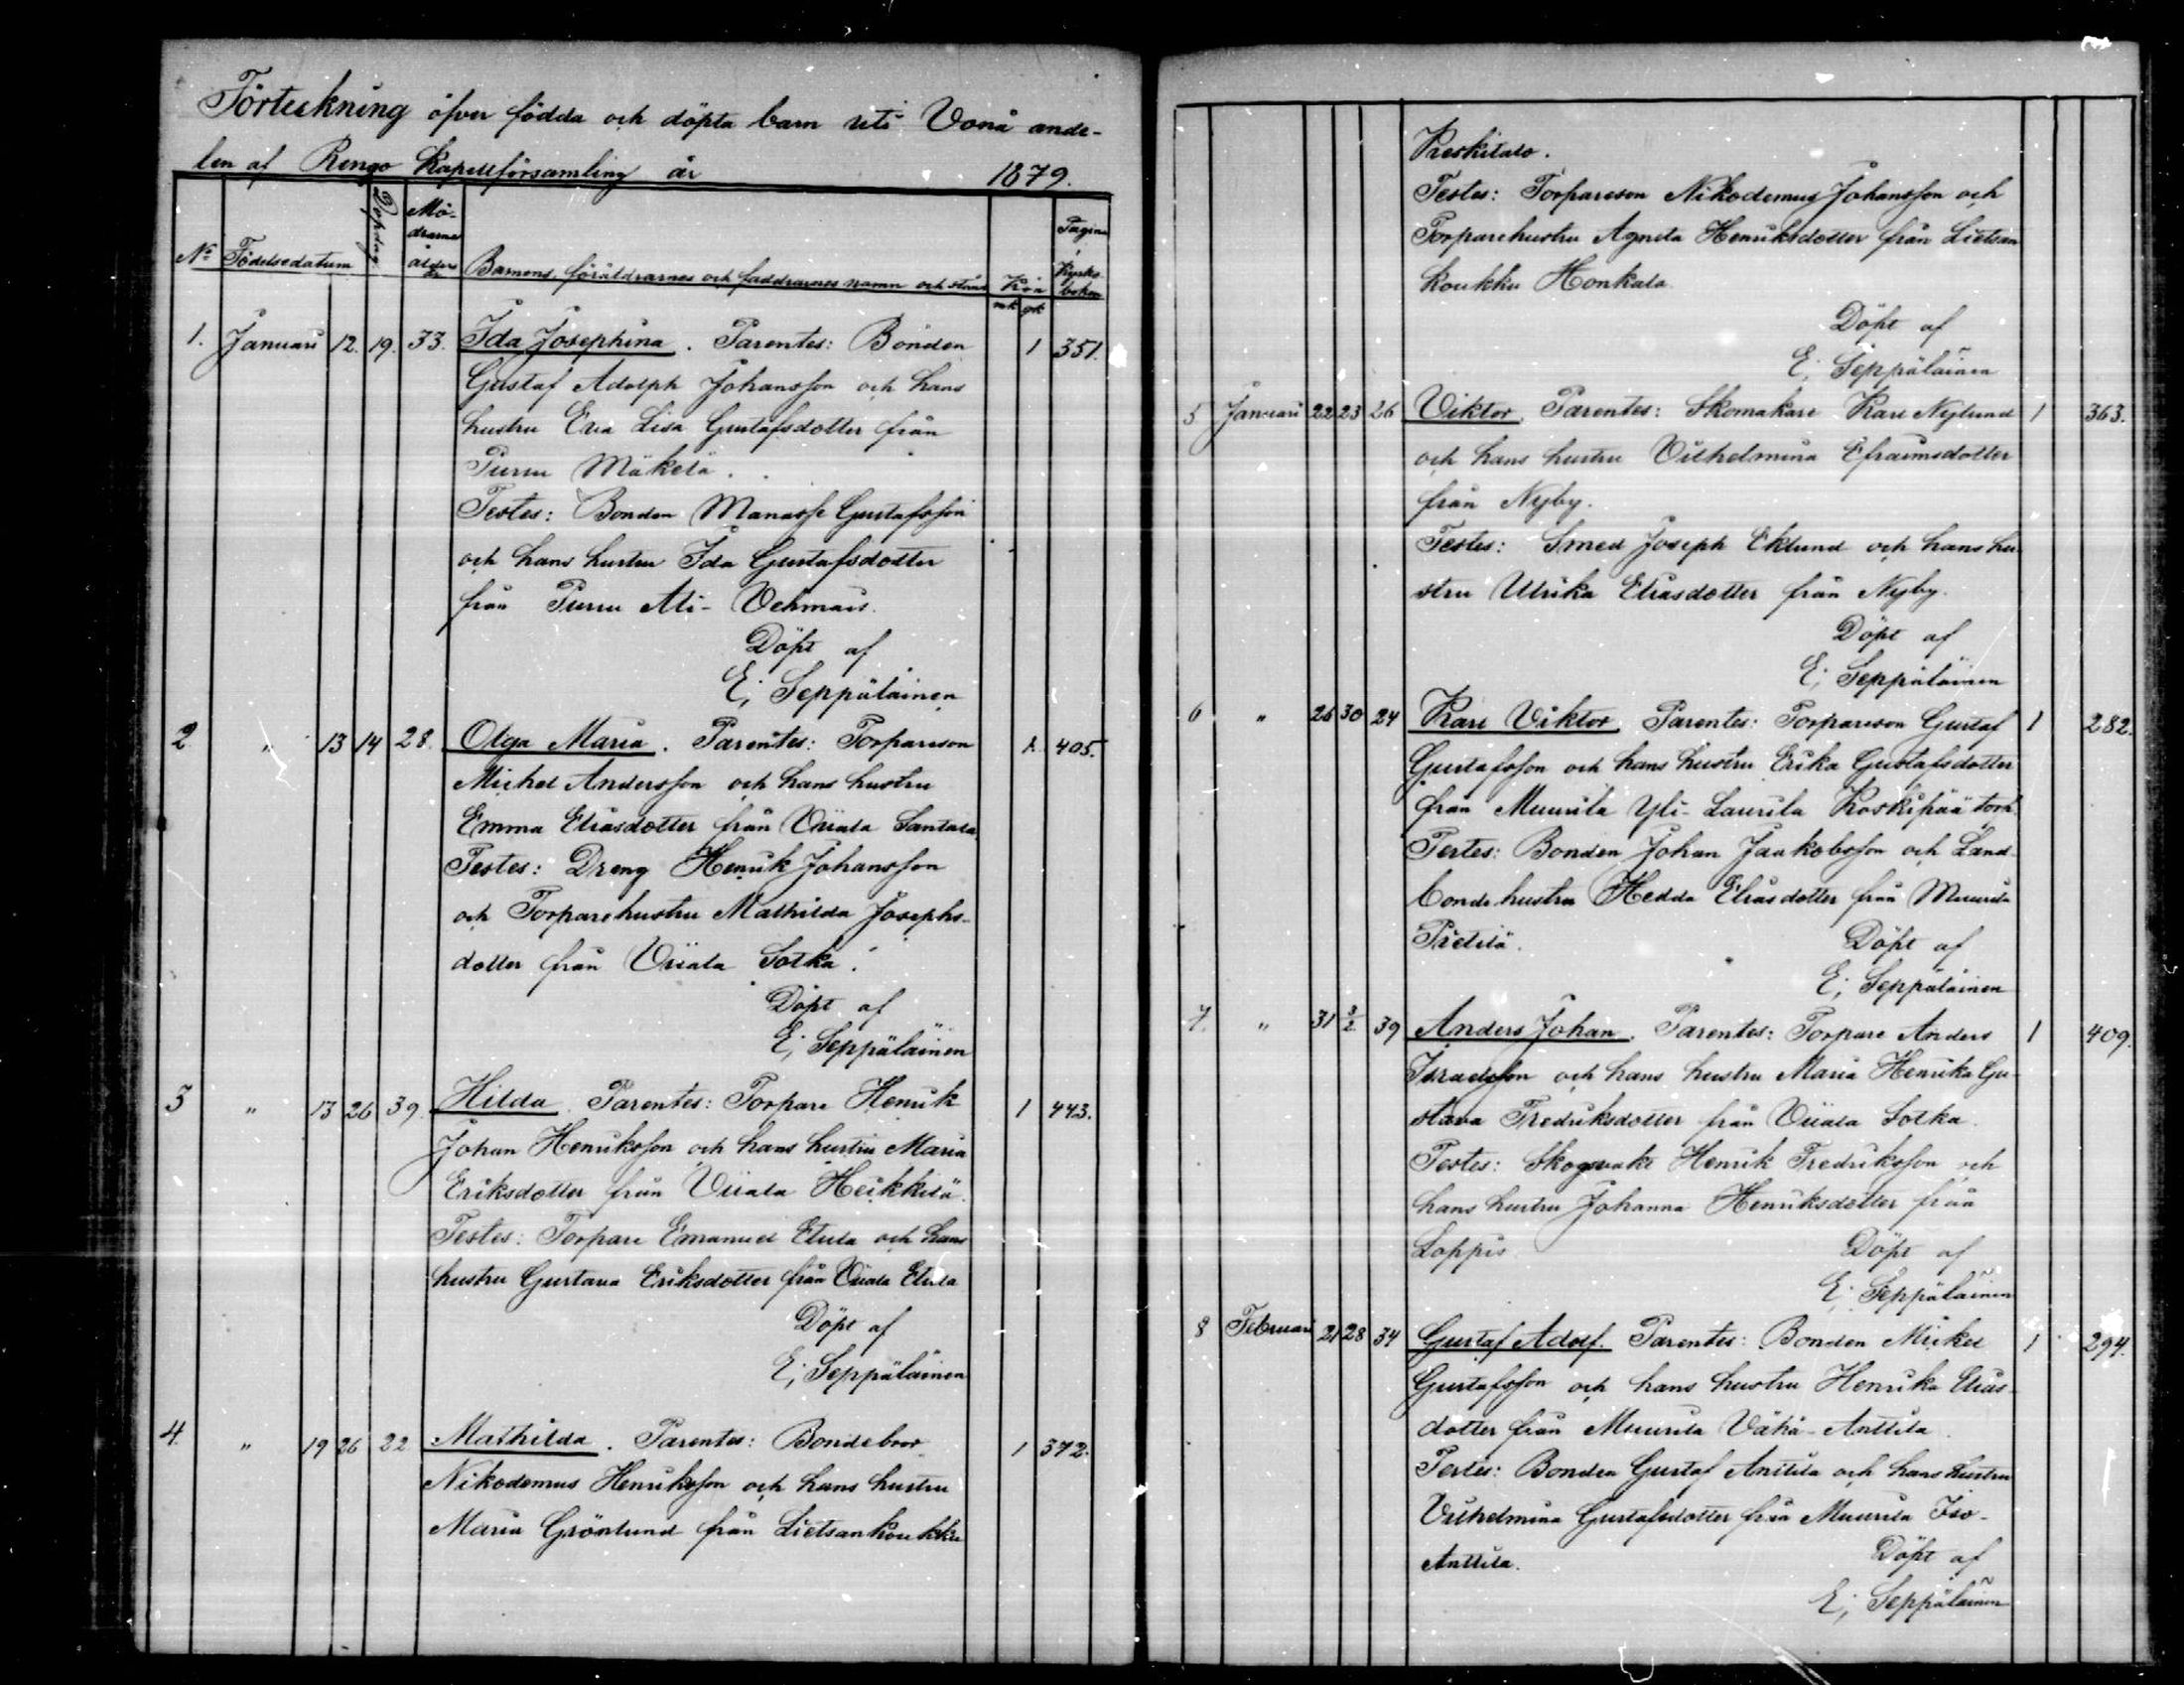 Förteckning öfver födda och döpta barn uti Vonå ande-
len af Rengo Kapellförsamling år 1879.
No Födelsedatum Dopdag Mö-drarne ålders år Barnens, föräldrarnes och faddrarnes namn och stånd Kön mk qk Pagina i Kyrko-boken
1. Januari 12. 19. 33. Ida Josephina. Parentes: Bonden 1 351.
Gustaf Adolph Johansson och hans
hustru Eva Lisa Gustafsdotter från
Puruu Mäkelä.
Testes: Bonden Manasse Gustafsson
och hans hustru Ida Gustafsdotter
från Puruu Ali-Vehmais.
Döpt af
E; Seppäläinen
2 " 13 14 28. Olga Maria. Parentes: Torpareson 1. 405.
Michel Andersson och hans hustru
Emma Eliasdotter från Viiala Santala
Testes: Dreng Henrik Johansson
och Torparehustru Mathilda Josephs-
dotter från Viiala Sotka.
Döpt af
E; Seppäläinen
3 " 13 26 39. Hilda. Parentes: Torpare Henrik 1 443.
Johan Henriksson och hans hustru Maria
Eriksdotter från Viiala Heikkilä.
Testes: Torpare Emanuel Etula och hans
hustru Gustava Eriksdotter från Viiala Etula
Döpt af
E; Seppäläinen
4. " 19 26 22 Mathilda. Parentes: Bondebror 1 372.
Nikodemus Henriksson och hans hustru
Maria Grönlund från Lietsankoukku
Keskitalo.
Testes: Torpareson Nikodemus Johansson och
Torparehustru Agneta Henriksdotter från Lietsan
koukku Honkala
Döpt af
E; Seppäläinen
5 Januari 22 23 26 Viktor. Parentes: Skomakare Karl Nylund 1 363.
och hans hustru Vilhelmina Efraimsdotter
från Nyby.
Testes: Smed Joseph Eklund och hans hu
stru Ulrika Eliasdotter från Nyby.
Döpt af
E; Seppäläinen
6 " 26 30 24 Karl Viktor. Parentes: Torpareson Gustaf 1 282.
Gustafsson och hans hustru Erika Gustafsdotter
från Muurila Yli-Laurila Koskipää torp.
Testes: Bonden Johan Jaakobsson och Land-
bondehustru Hedda Eliasdotter från Muurila
Pietilä. Döpt af
E; Seppäläinen
7. " 31 3/2. 39 Anders Johan. Parentes: Torpare Anders 1 409.
Israelsson och hans hustru Maria Henrika Gu-
stava Fredriksdotter från Viiala Sotka.
Testes: Skogsvakt Henrik Fredriksson och
hans hustru Johanna Henriksdotter från
Loppis Döpt af
E; Seppäläinen
8 Februari 21 28 34 Gustaf Adolf. Parentes: Bonden Mikel 1 294.
Gustafsson och hans hustru Henrika Elias-
dotter från Muurila Vähä-Anttila.
Testes: Bonden Gustaf Anttila och hans hustru
Vilhelmina Gustafsdotter från Muurila Iso-
Anttila. Döpt af
E; Seppäläinen